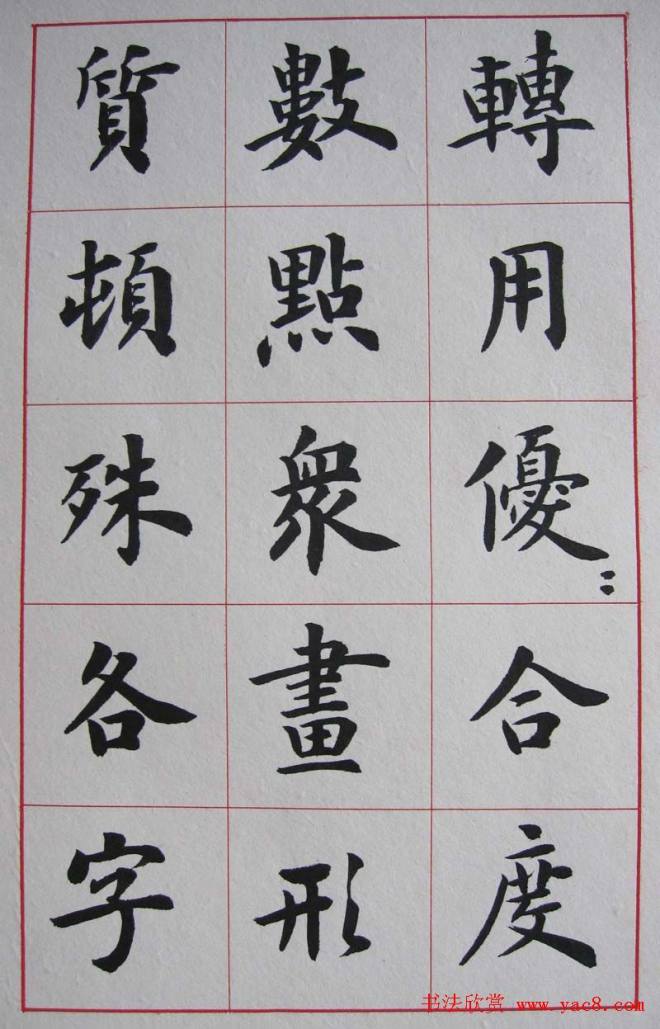 轉用優〻合度
數點衆畫形
質頓殊各字
书法欣赏 www.yac8.com